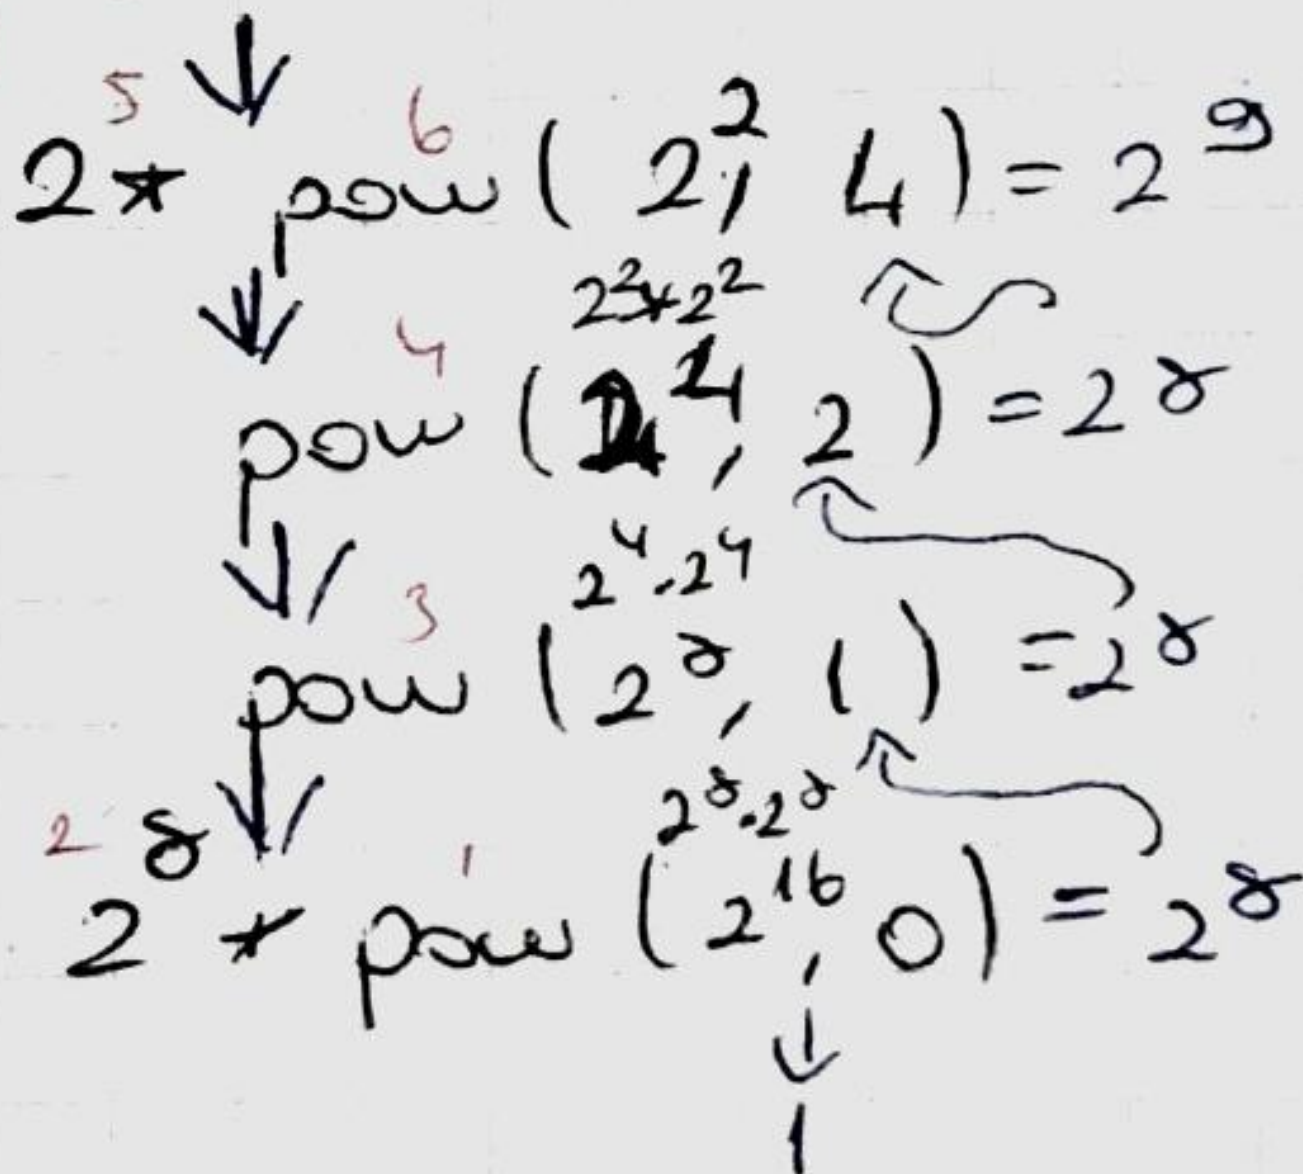 5 6
2 * pow ( 2², 4 ) = 2⁹
2² * 2²
4
pow ( 2⁴, 2 ) = 2⁸
2⁴ . 2⁴
3
pow ( 2⁸, 1 ) = 2⁸
2⁸ . 2⁸
2 1
2⁸ * pow ( 2¹⁶, 0 ) = 2⁸
1